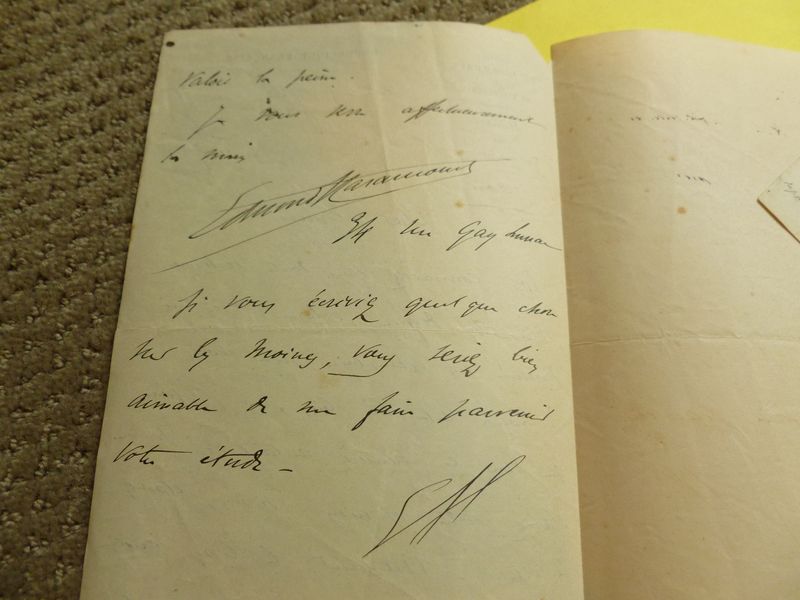 valois la peine.
Je vous serre affectueusement
la main
Edmond Haraucourt
34 rue Gay Lussac
Si vous écriviez quelque chose
sur les Moines, vous seriez bien
aimable de me faire parvenir
votre étude _
EH